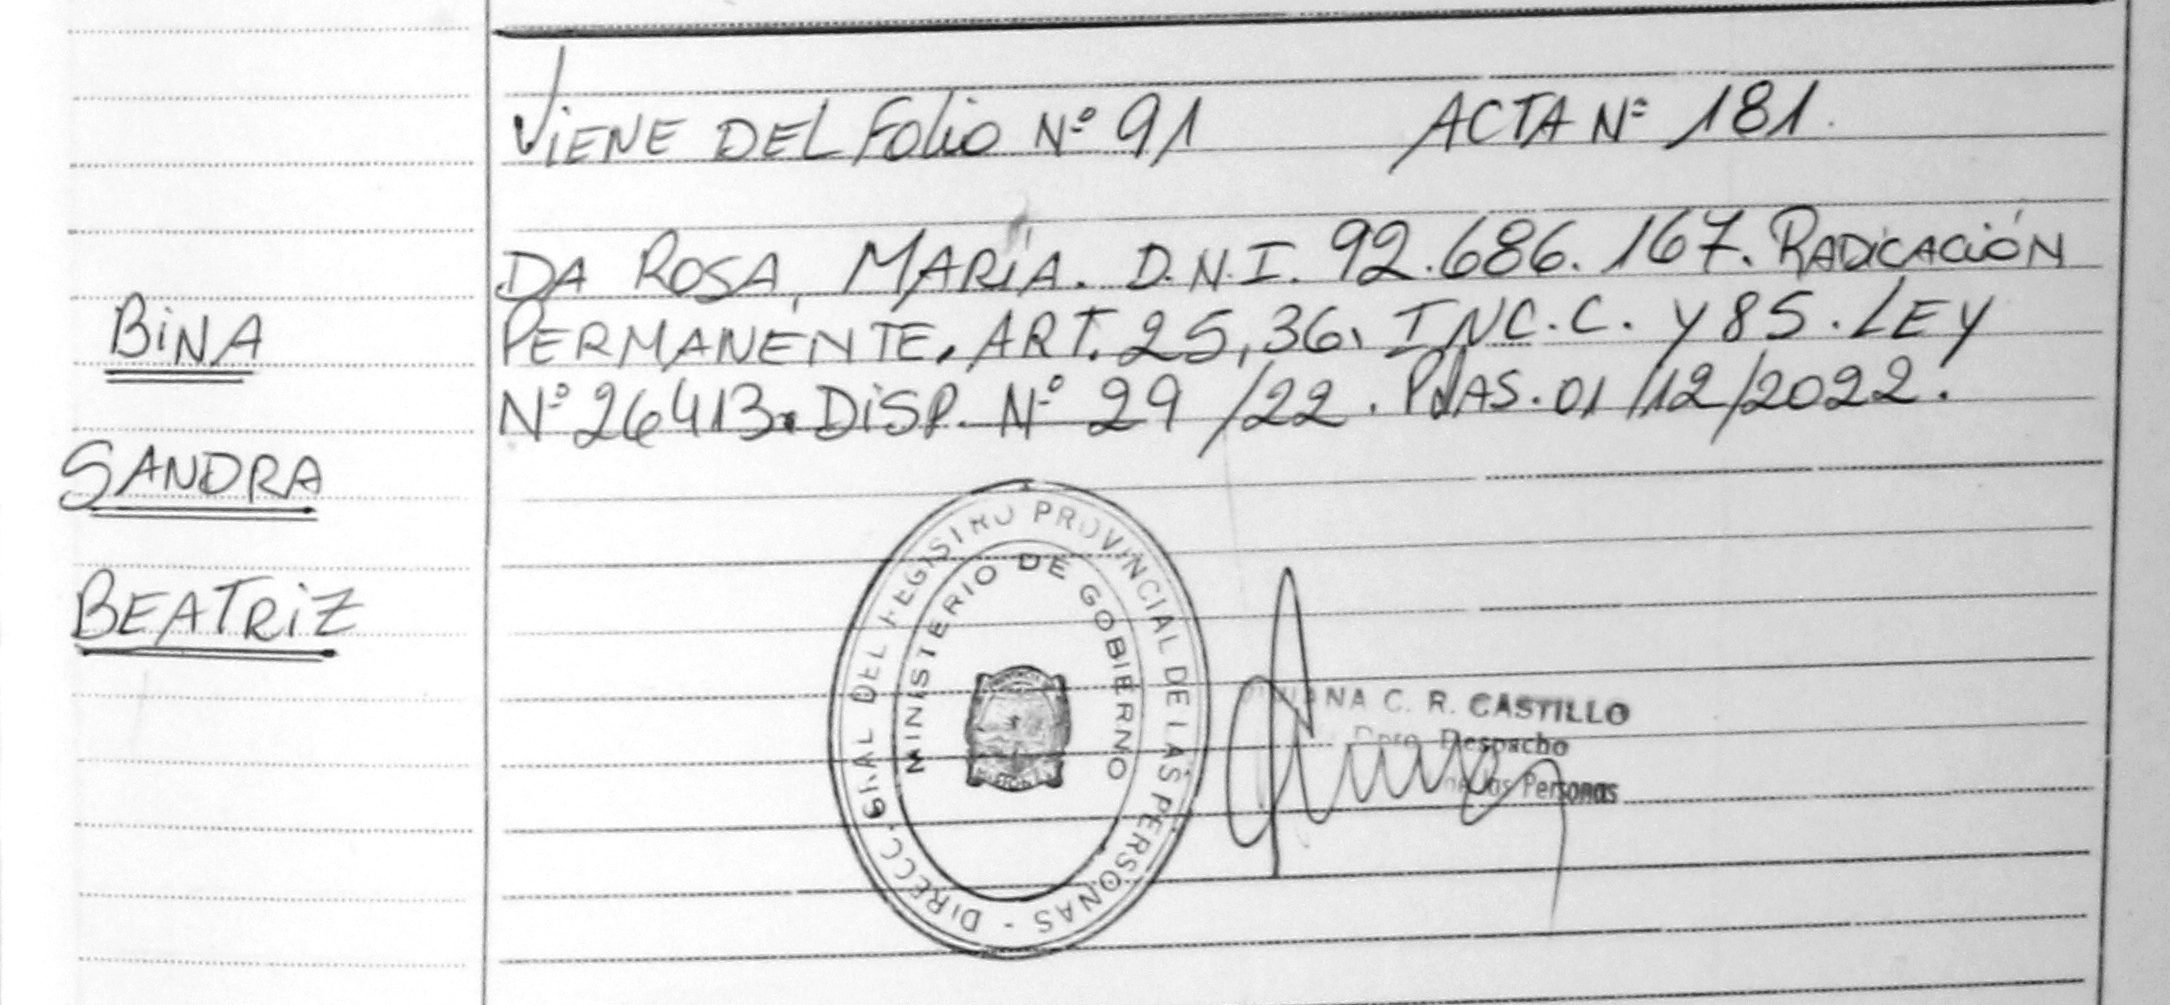 VIENE DEL FOLIO Nº 91 ACTA Nº 181.
BINA
SANDRA
BEATRIZ
DA ROSA, MARÍA. D.N.I. 92.686.167. RADICACIÓN
PERMANENTE. ART. 25, 36, INC. C. Y 85. LEY
Nº 26413. DISP. Nº 29/22. PDAS. 01/12/2022.
DIRECC. GRAL DEL REGISTRO PROVINCIAL DE LAS PERSONAS -
MINISTERIO DE GOBIERNO
C. R. CASTILLO
Despacho
las Personas